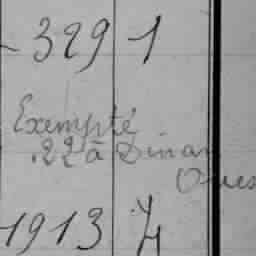 329 1
Exempté
22 à Dinan
Oues
1913 4